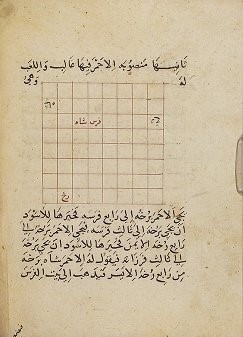 منصوبه الاحمر فيها غالب واللعب
له وهي
فرس شاه
رخ
يجي الاحمر برخه الى رابع فرسه فخيرها للاسود
ان يجي برخه الى ثالث فرسه فيجي الاحمر برخه الى
رابع رخه الايمن فخيرها للاسود ان يجي برخه
الى ثالث فرزانه فيقول له الاحمر شاه برخه
من رابع رخه الايسر فيذهب الى بيت الفرس